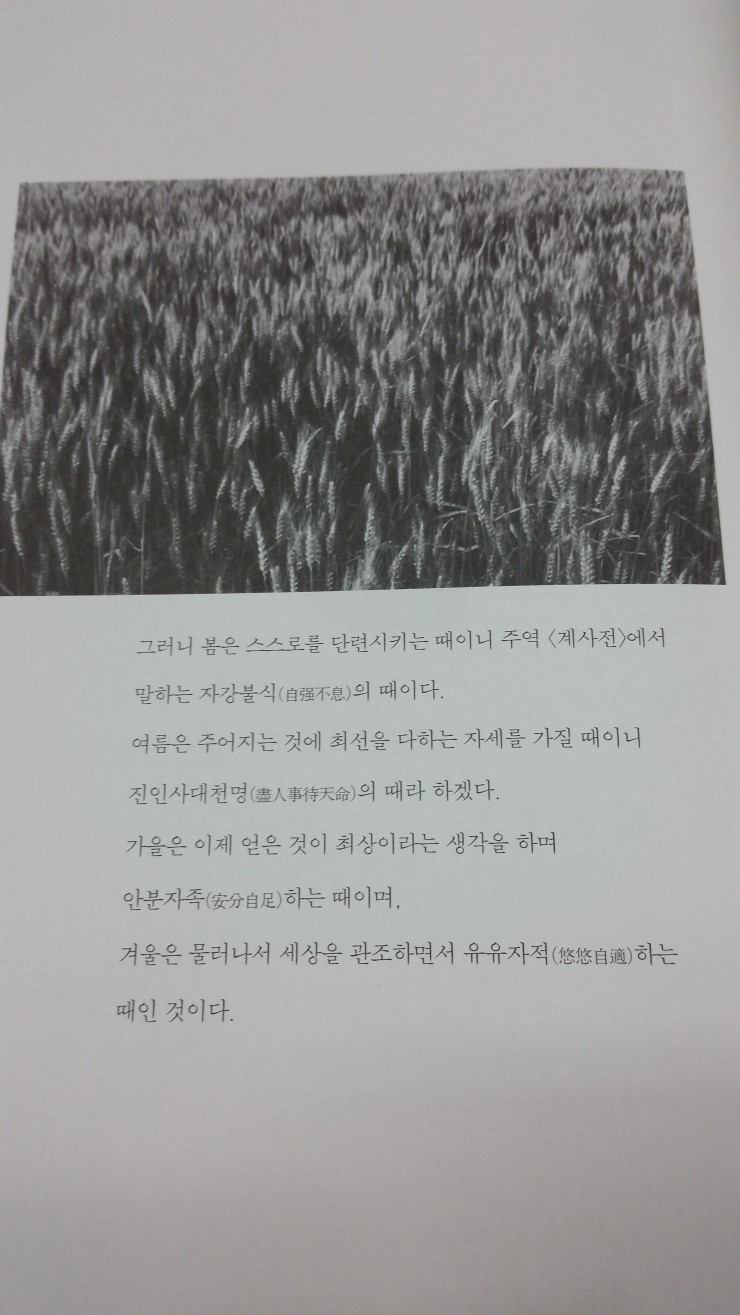 그러니 봄은 스스로를 단련시키는 때이니 주역 〈계사전〉에서
말하는 자강불식(自强不息)의 때이다.
여름은 주어지는 것에 최선을 다하는 자세를 가질 때이니
진인사대천명(盡人事待天命)의 때라 하겠다.
가을은 이제 얻은 것이 최상이라는 생각을 하며
안분자족(安分自足)하는 때이며,
겨울은 물러나서 세상을 관조하면서 유유자적(悠悠自適)하는
때인 것이다.